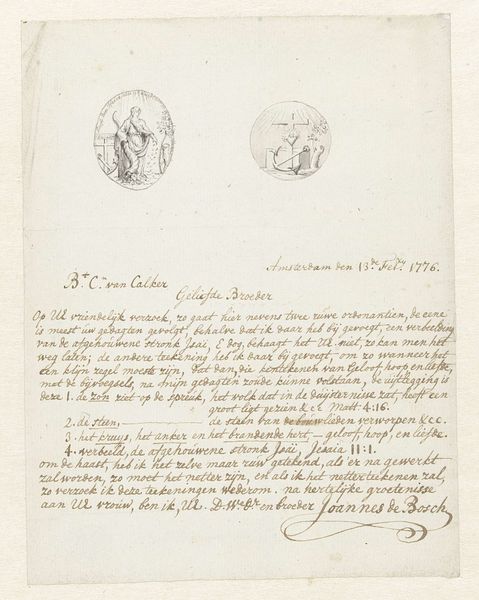 Amsterdam den 13.de Feb.ry 1776.
B.r C.n van Calker
Geliefde Broeder
Op UE vriendelijk verzoek, zo gaat hier nevens twee ruwe ordonantien, de eene
is meest uw gedagten gevolgt, behalve dat ik daar heb bij gevoegt, een verbeelding
van de afgehouwene stronk Isaï, & dog, behaagt het UE niet, zo kan men het
weg laten; de andere teekening heb ik daar bij gevoegt, om zo wanneer het
een klijn zegel moeste zijn, dat dan, die kentekenen van geloof hoop en liefde,
met de bijvoegsels, na mijn gedagten zoude kunne volstaan, de uijtlegging is
deze 1. de zon ziet op de spreuk, het volk dat in de duijsternisse zat, heeft een
groot ligt gezien &c. Matt: 4:16.
2. de steen, de steen van de bouwlieden verworpen &c.
3. het kruys, het anker en het brandende hert, — geloof, hoop, en liefde.
4. verbeeld, de afgehouwene stronk Isaï, Jesaia 11:1.
om de haast, heb ik het zelve maar ruw getekend, als er na gewerkt
zal worden, zo moet het netter zijn, en als ik het netter teekenen zal,
zo verzoek ik deze teekeningen wederom. na hertelijke groetenisse
aan UE vrouw, ben ik, UE. D.W. Dr. en broeder Joannes de Bosch